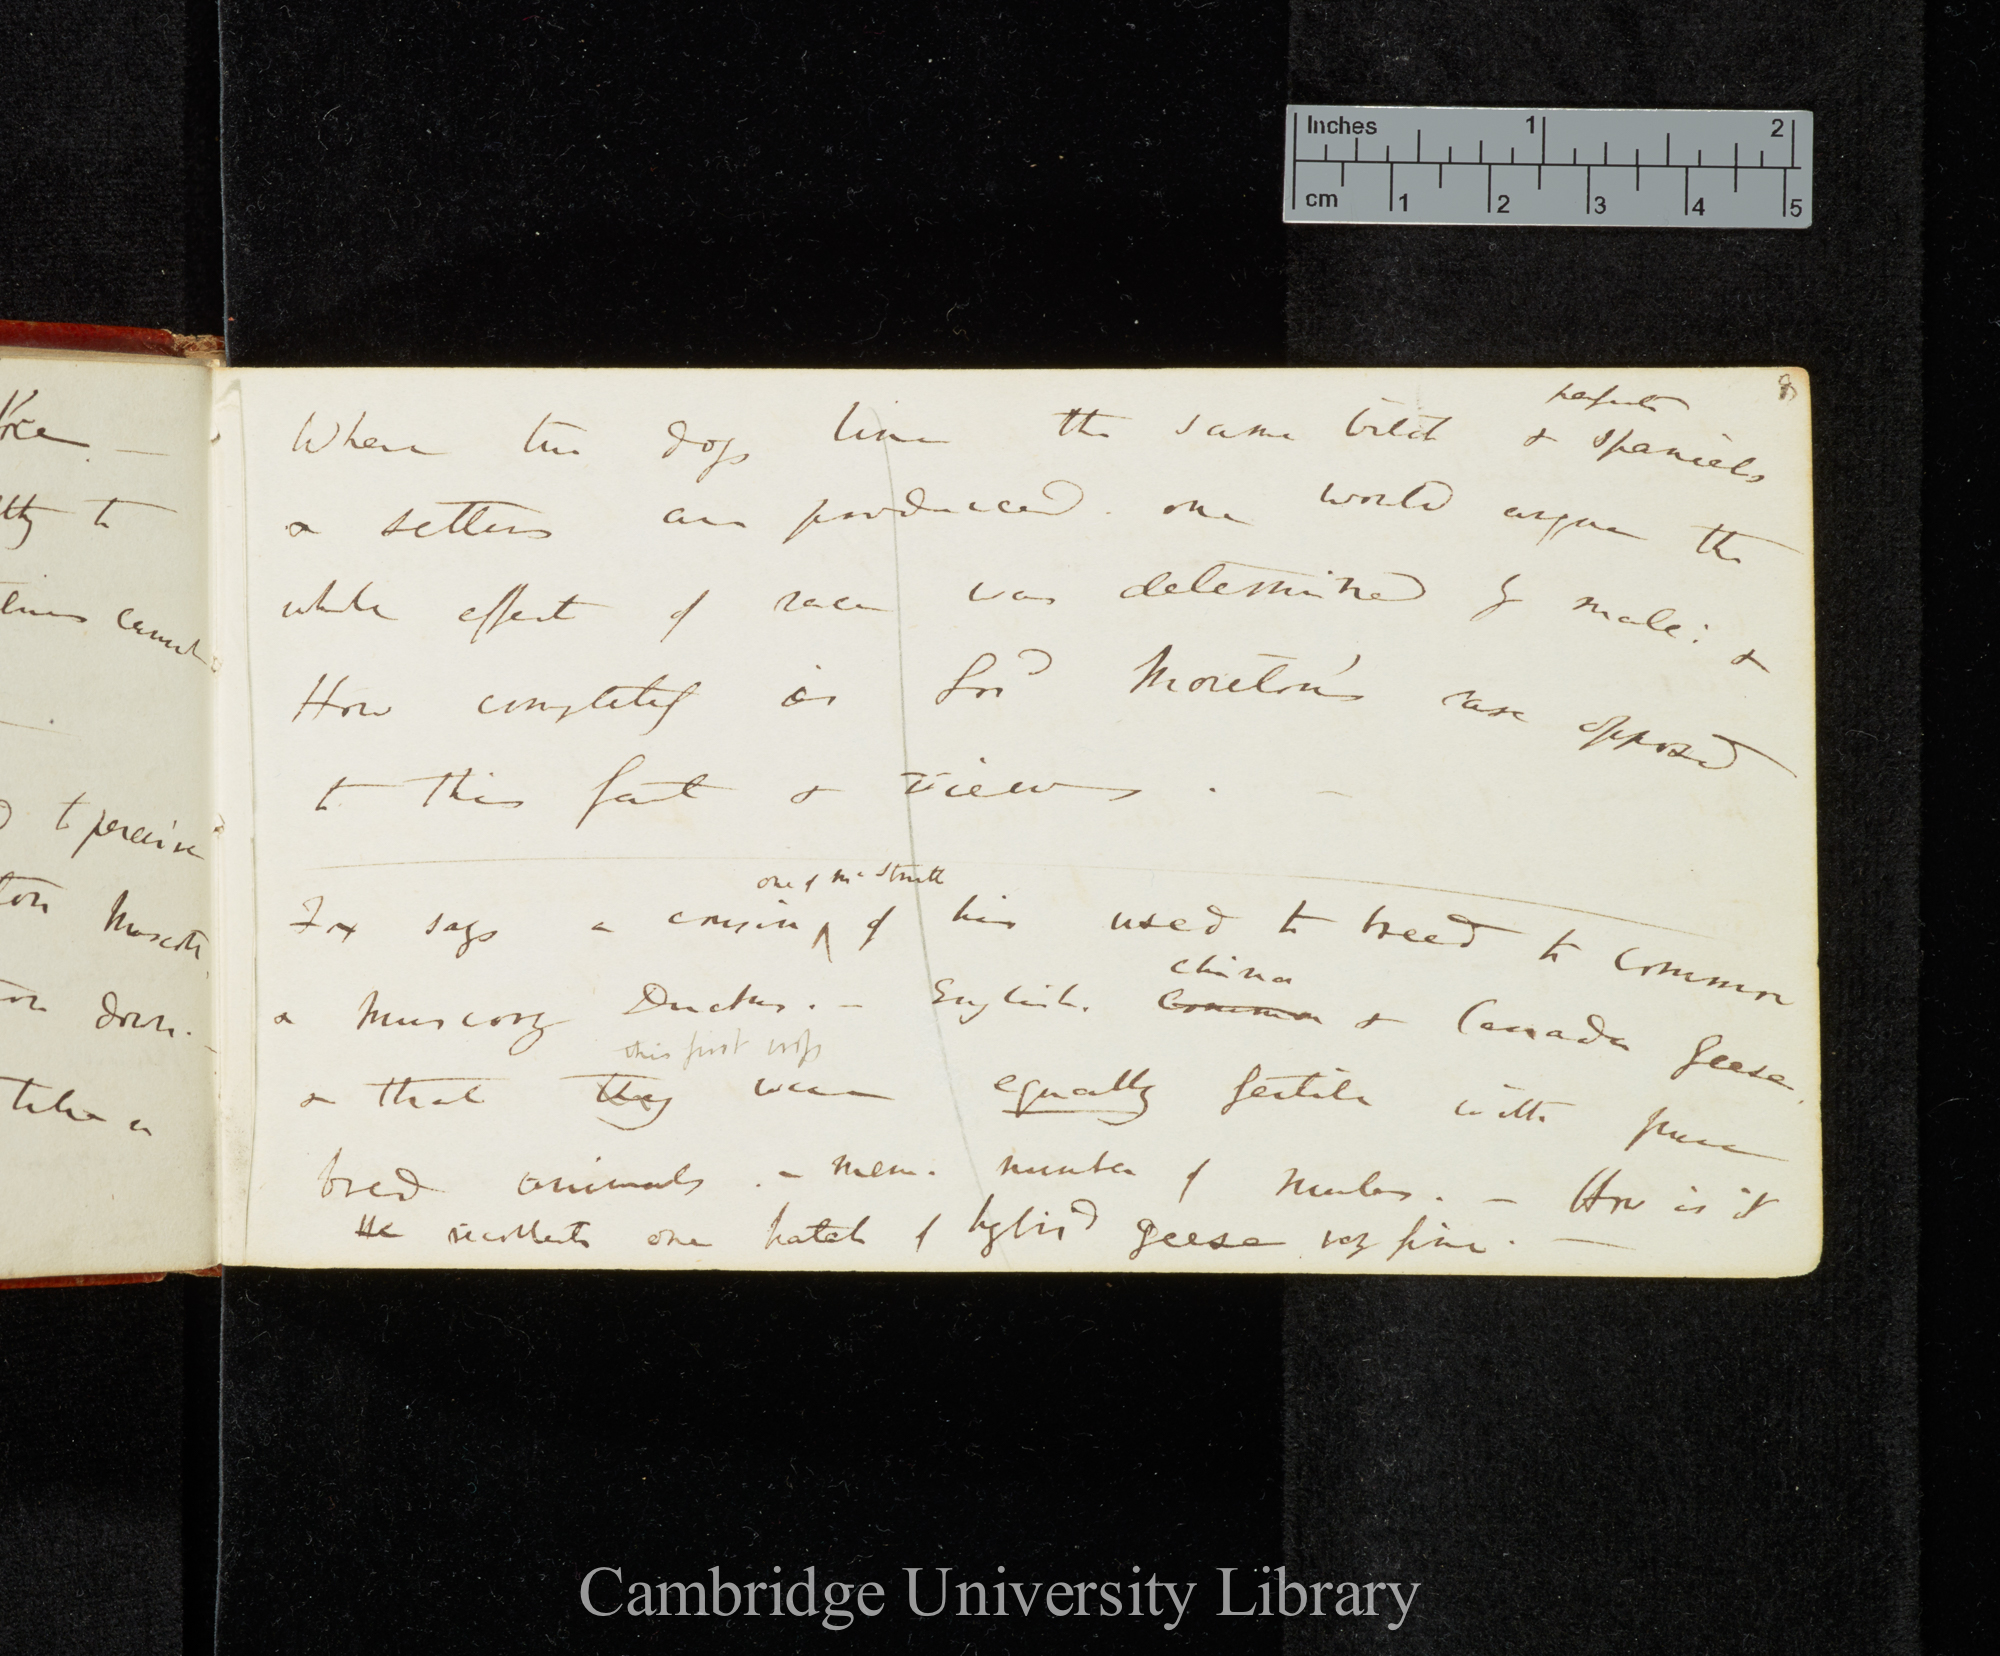 Inches 1 2
cm 1 2 3 4 5
perfect
Where two dogs line the same bitch & spaniels
& setters are produced. one would argue the
whole effect of race was determined by male: &
How completely is Lord Moreton's case opposed
to this fact & views. —
one of Mr Strutt
Fox says a cousin ^ of his used to breed to common
china
& Muscovy Ducks. — English. Common & Canada Geese.
this first crop
& that they were equally fertile with pure
bred animals. — Mem. number of mules. — How is it
He recollects one hatch of hybrid geese very fine. —
to
cannot
to perceive
down.
take a
Cambridge University Library